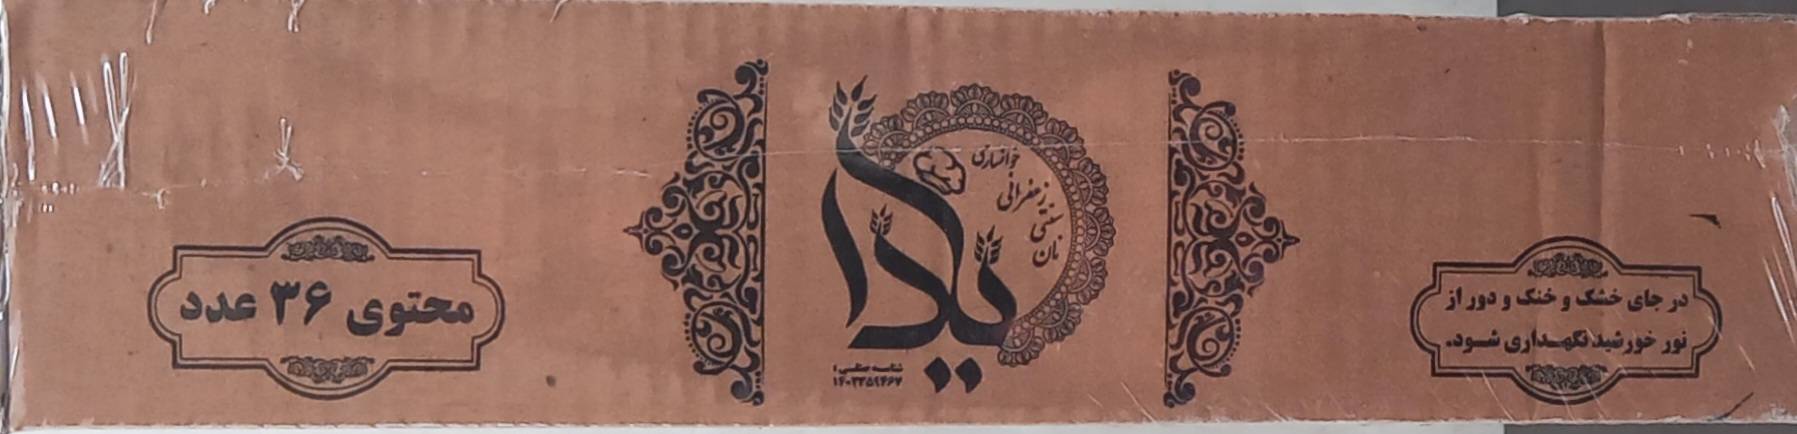 در جای خشک و خنک و دور از
نور خورشید نگهداری شود.
نان
سنتی
زعفرانی
خوانساری
شناسه صنفی :
۱۴۰۳۳۵۹۴۶۷
محتوی ۳۶ عدد